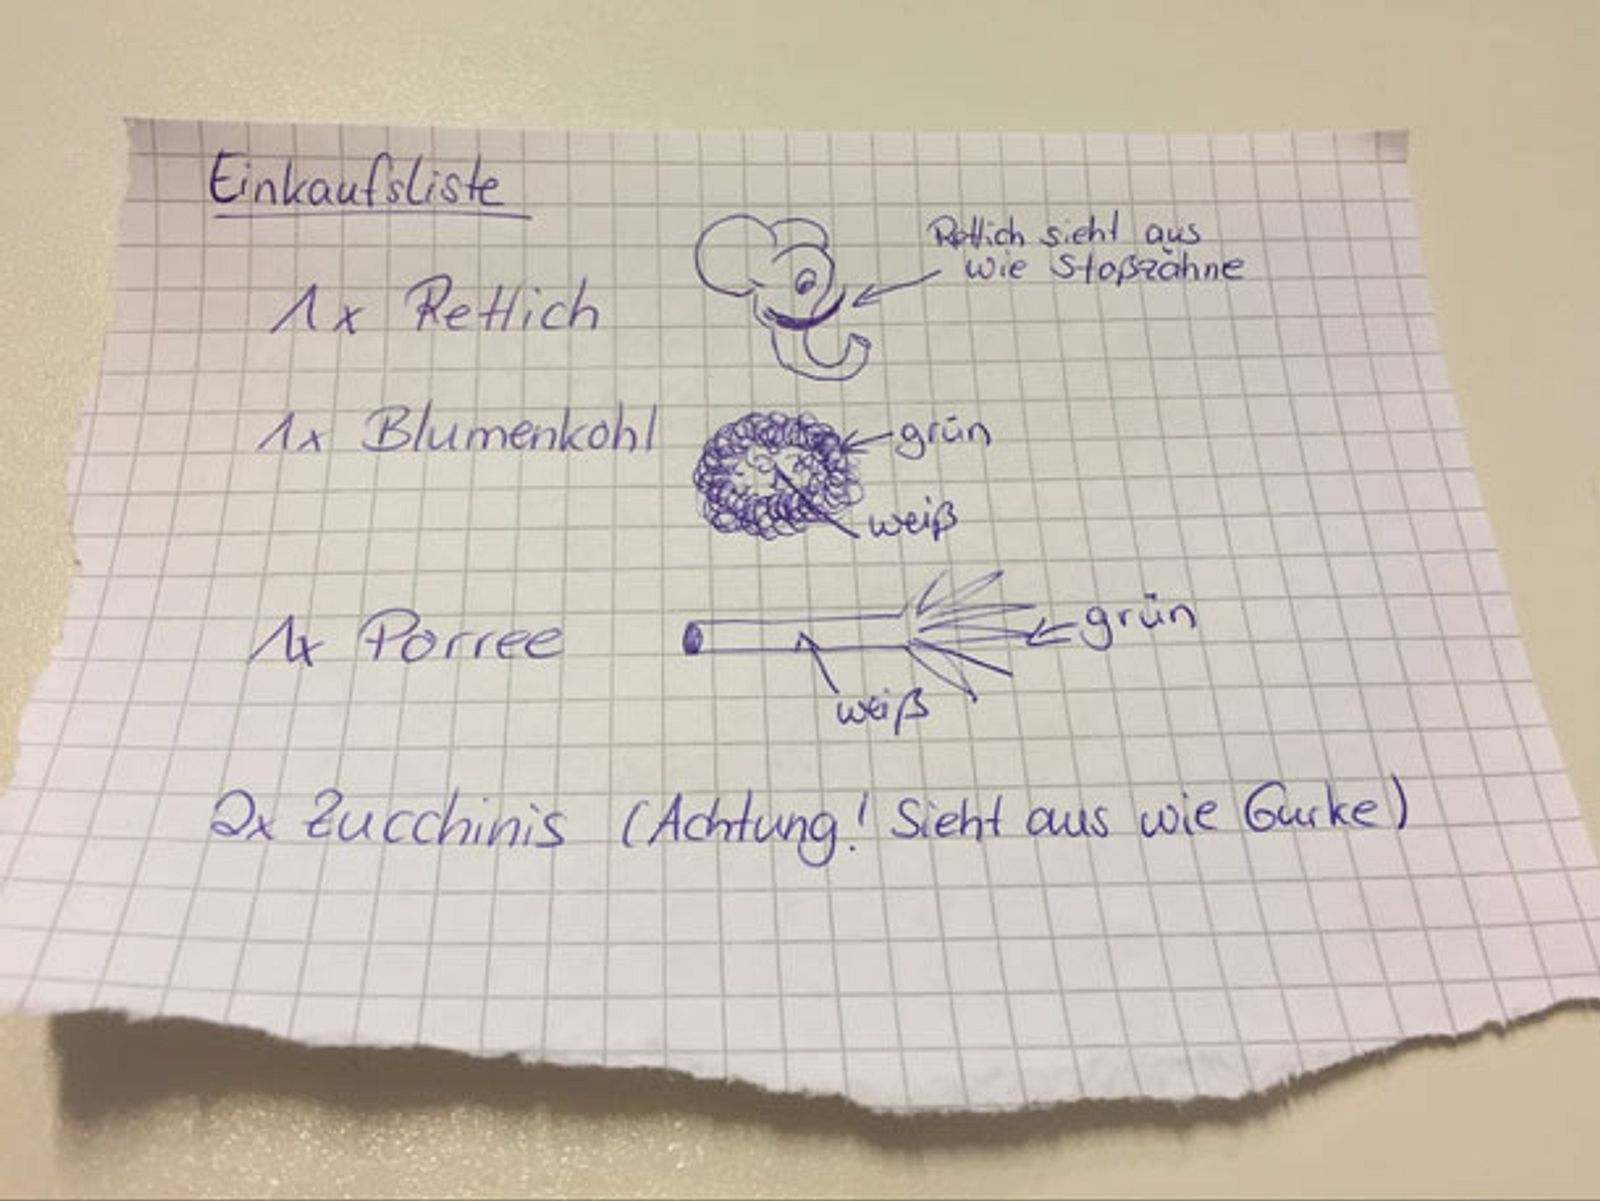 Einkaufsliste
Rettich sieht aus
wie Stoßzähne
1x Rettich
1x Blumenkohl
grün
weiß
1x Porree
grün
weiß
2x Zucchinis (Achtung! Sieht aus wie Gurke)